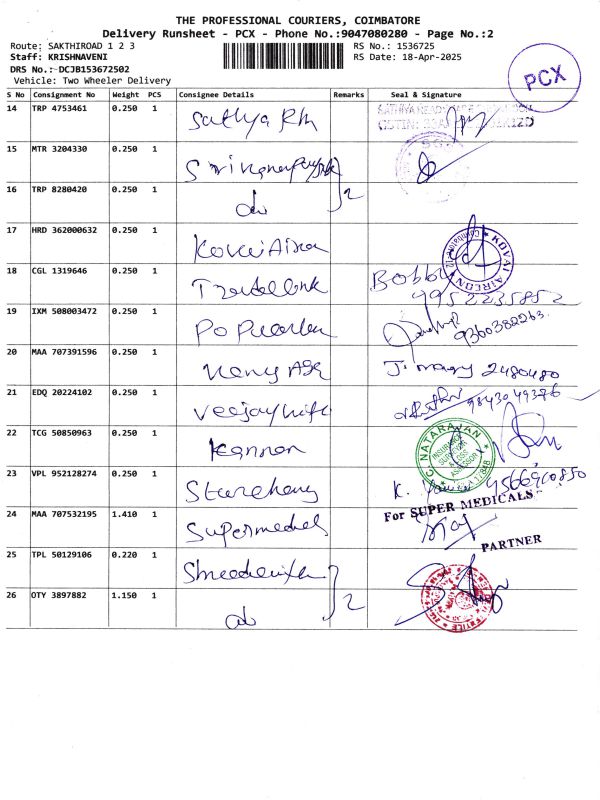 THE PROFESSIONAL COURIERS, COIMBATORE
Delivery Runsheet - PCX - Phone No.:9047080280 - Page No.:2
Route: SAKTHIROAD 1 2 3
RS No.: 1536725
Staff: KRISHNAVENI
RS Date: 18-Apr-2025
DRS No.:-DCJB153672502
Vehicle: Two Wheeler Delivery
PCX
S No Consignment No Weight PCS Consignee Details Remarks Seal & Signature
14 TRP 4753461 0.250 1 Sathya
15 MTR 3204330 0.250 1
16 TRP 8280420 0.250 1 do 2
17 HRD 362000632 0.250 1 Kovai Aircon KOVAI AIRCON
18 CGL 1319646 0.250 1 Bobby
9952235852
19 IXM 508003472 0.250 1 9360382263
20 MAA 707391596 0.250 1 J. mary 2480480
21 EDQ 20224102 0.250 1 9843049376
22 TCG 50850963 0.250 1 Kannan C. NATARAJAN
INSURANCE SURVEYOR & LOSS ASSESSOR
23 VPL 952128274 0.250 1 K. 9566960850
For SUPER MEDICALS
24 MAA 707532195 1.410 1 Supermedicals
PARTNER
25 TPL 50129106 0.220 1
26 OTY 3897882 1.150 1 do 2